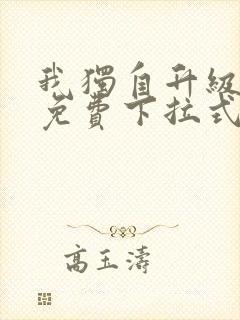 我獨自升級
免費下拉式
高玉濤